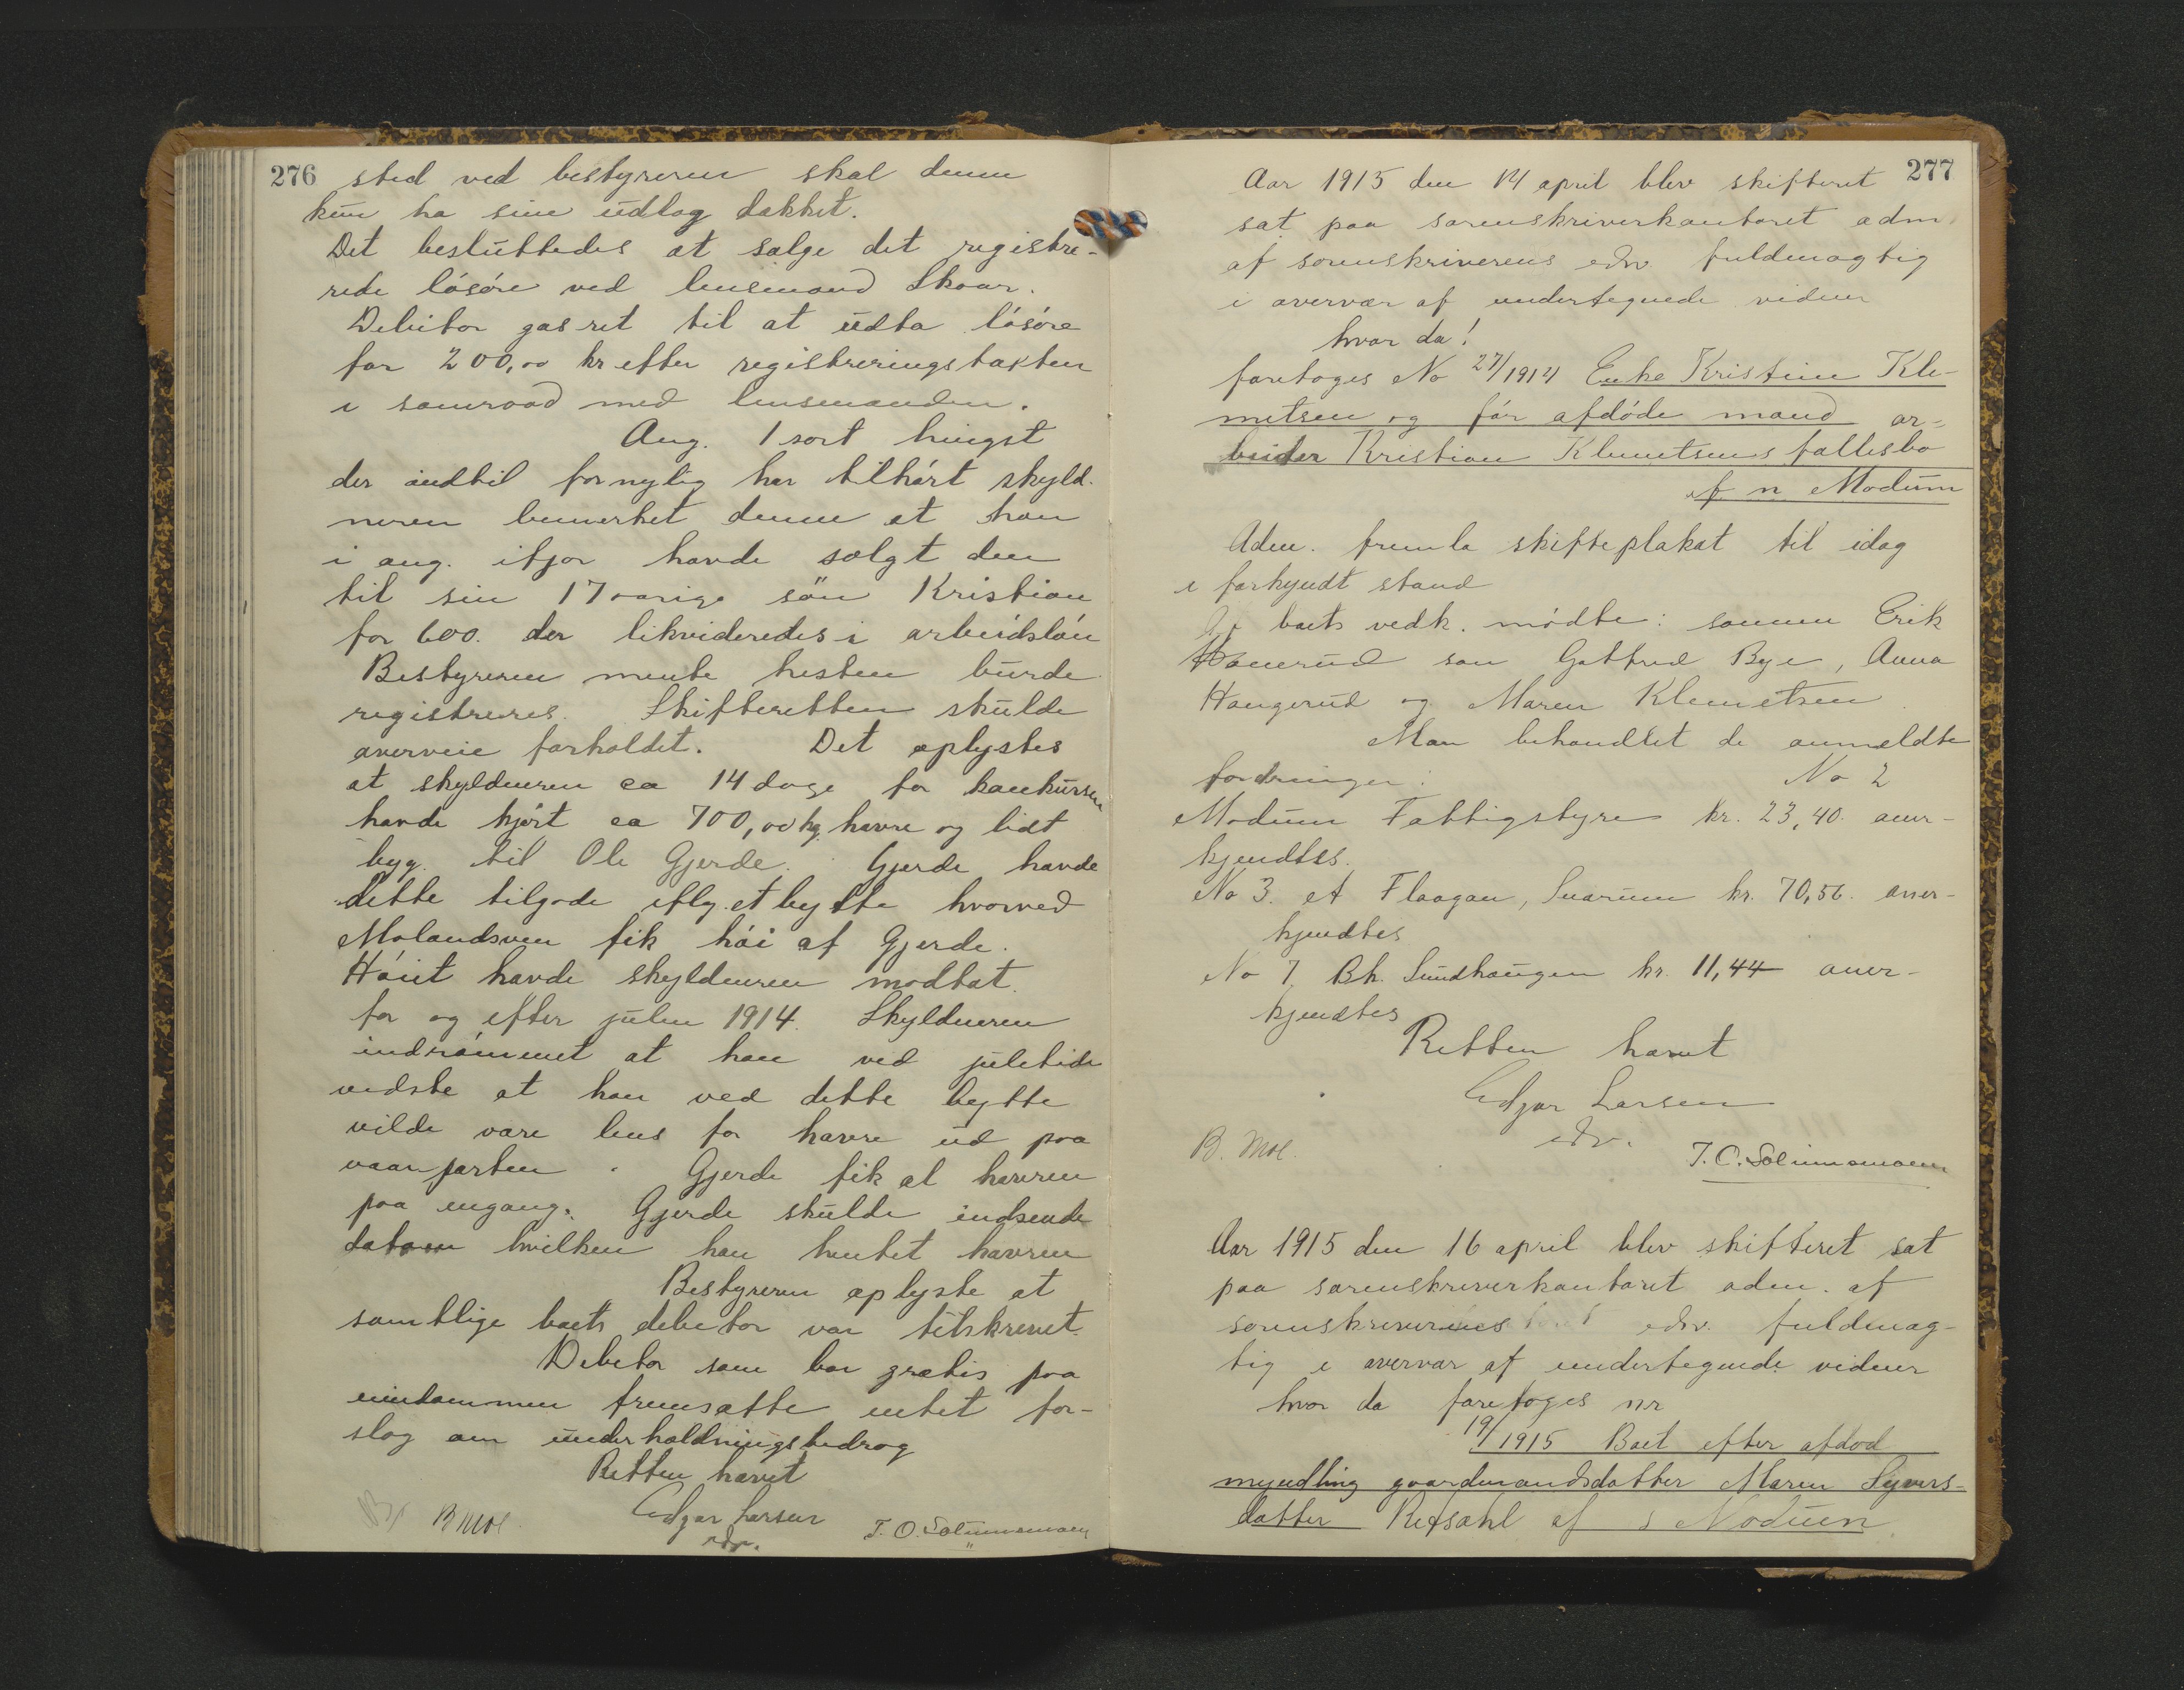 276
sted ved bestyreren skal denne
kun ha sine udlæg dækket.
Det besluttedes at sælge det registre-
rede løsøre ved lensmand Skaar.
Debitor gaes ret til at udta løsøre
for 200,00 kr efter registreringstaksten
i samraad med lensmanden.
Ang. 1 sort hingst
der indtil fornylig har tilhørt skyld-
neren bemerket denne at han
i aug. ifjor havde solgt den
til sin 17 aarige søn Kristian
for 600. der likvideredes i arbeidsløn
Bestyreren mente hesten burde
registreres. Skifteretten skulde
overveie forholdet. Det oplystes
at skyldneren ca 14 dage før konkursen
havde kjørt ca 700,00 kg. havre og lidt
byg. til Ole Gjerde. Gjerde havde
dette tilgode iflg. et bytte hvorved
Molandsveen fik høi af Gjerde.
Høiet havde skyldneren modtat
før og efter julen 1914. Skyldneren
indrømmet at han ved juletide
vidste at han ved dette bytte
vilde være lens for havre ud paa
vaarparten. Gjerde fik al havren
paa engang. Gjerde skulde indsende
datoen hvilken han hentet havren
Bestyreren oplyste at
samtlige boets debitor var tilskrevet.
Debitor som bor gratis paa
eiendommen fremsatte intet for-
slag om underholdningsbidrag
Retten hævet
Edgar Larsen
edv.
B Moe T. O.
277
Aar 1915 den 14 april blev skifteret
sat paa sorenskriverkontoret adm.
af sorenskriverens edsv fuldmægtig
i overvær af undertegnede vidner
hvor da!
foretoges No 27/1914 Enke Kristine Kle-
metsen og før afdøde mand ar-
beider Kristian Klemetsens fællesbo
af n Modum
Adm. fremla skifteplakat til idag
i forkyndt stand
I boets vedk. mødte: sønnen Erik
som Gotfred Bye, Anna
Haugerud og Maren Klemetsen.
Man behandlet de anmeldte
fordringer: No 2
Modum Fattigstyre kr. 23,40. aner-
kjendtes.
No 3. A Flaagan, Snarum kr. 70,56. aner-
kjendtes
No 7 Bh. Sundhaugen kr. 11,44 aner-
kjendtes
Retten hævet
Edgar Larsen
edv.
B. Moe. T. O.
Aar 1915 den 16 april blev skifteret sat
paa sorenskriverkontoret adm. af
sorenskriverens edsv. fuldmæg-
tig i overvær af undertegnede vidner
hvor da foretoges nr
19/1915 Boet efter afdød
myndling gaardmandsdatter Maren Syvers-
datter af s Modum